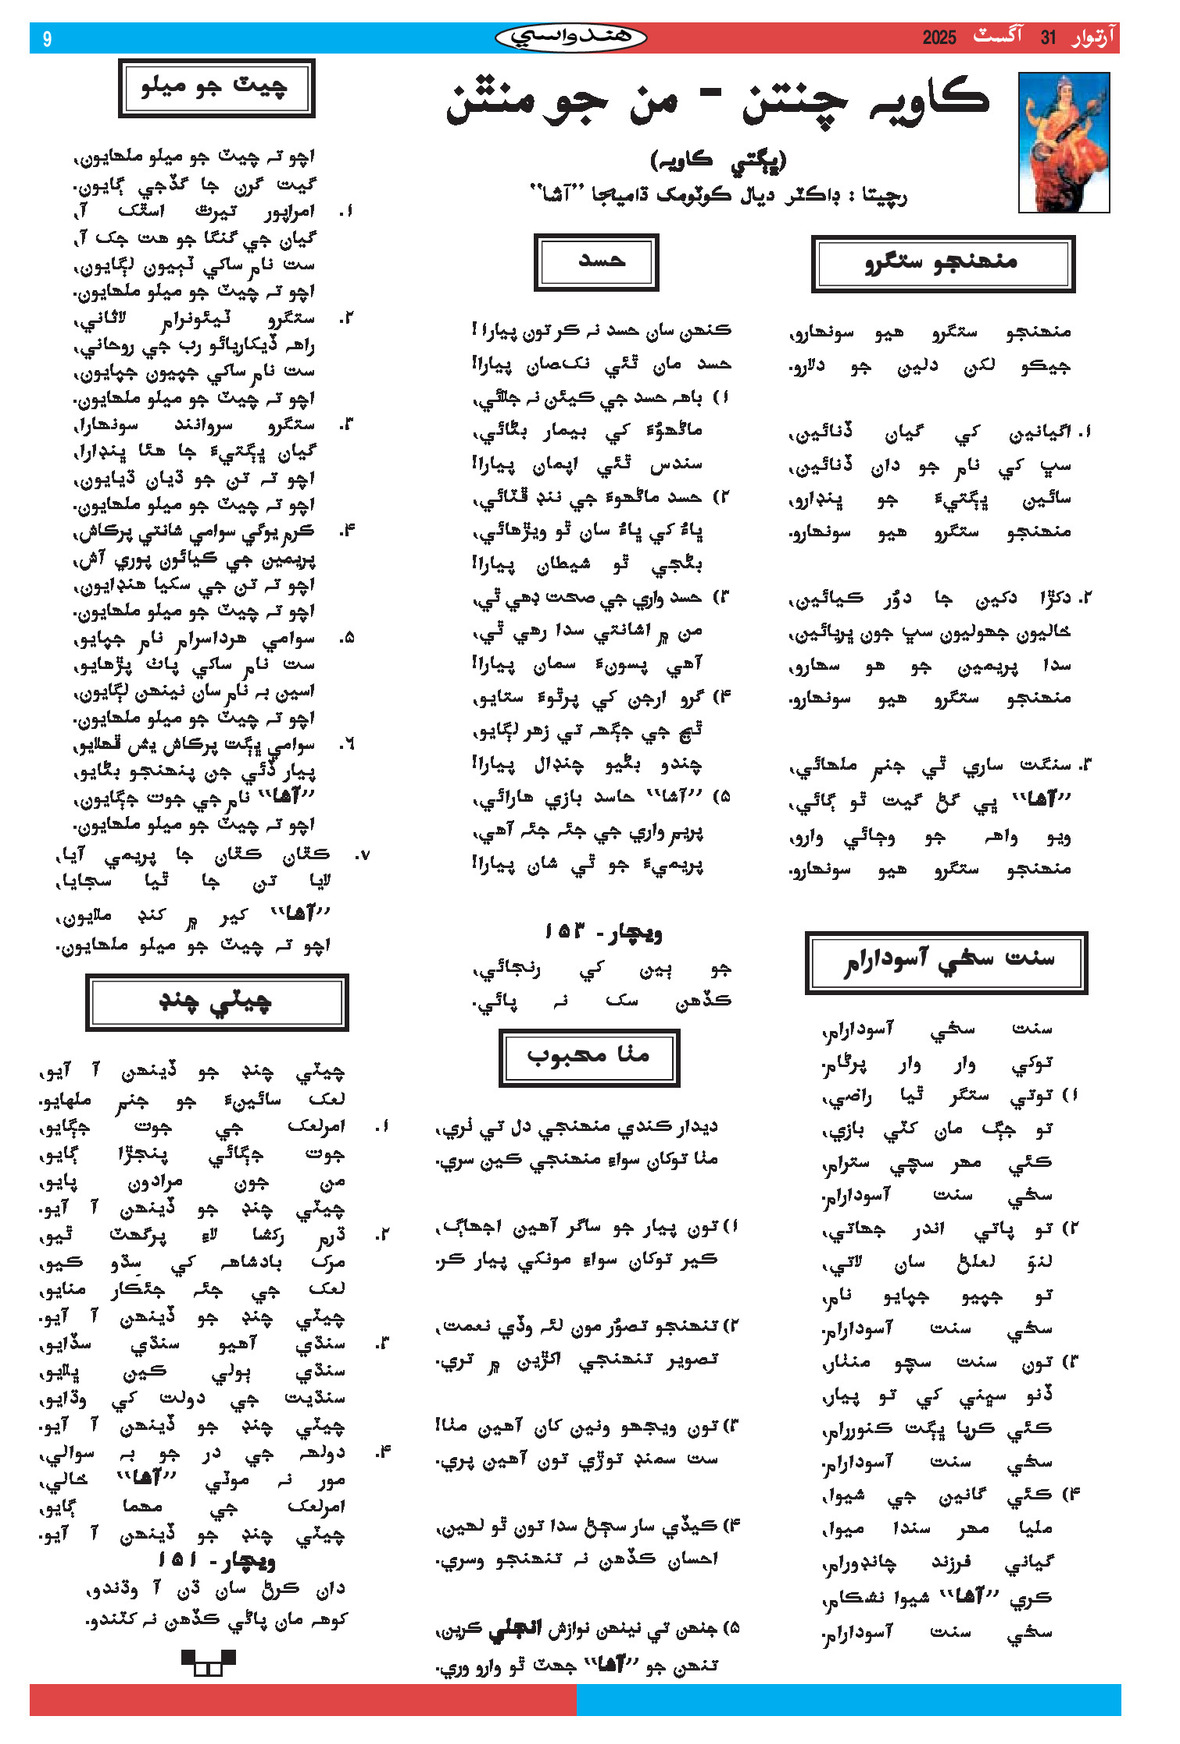 آرتوار 31 آگسٽ 2025
هندواسي
9
ڪاويہ چنتن - من جو منٿن
(ڀڳتي ڪاويہ)
رچيتا : ڊاڪٽر ديال ڪوٽومڪ ڌاميجا ”آشا“
منھنجو ستگرو
منھنجو ستگرو هيو سونهارو،
جيڪو لکن دلين جو دلارو.
۱. اگيانين کي گيان ڏنائين،
سڀ کي نام جو دان ڏنائين،
سائين ڀڳتيءَ جو ڀنڊارو،
منھنجو ستگرو هيو سونهارو.
۲. دکڙا دکين جا دوُر ڪيائين،
خاليون جهوليون سڀ جون ڀريائين،
سدا پريمين جو هو سهارو،
منھنجو ستگرو هيو سونهارو.
۳. سنگت ساري ٿي جنم ملهائي،
”آشا“ پي گڻ گيت ٿو ڳائي،
ويو واهہ جو وڄائي وارو،
منھنجو ستگرو هيو سونهارو.
سنت سخي آسودارام
سنت سخي آسودارام،
توکي وار وار پرڻام.
۱) توتي ستگر ٿيا راضي،
تو جڳ مان کٽي بازي،
ڪئي مهر سچي سترام،
سخي سنت آسودارام.
۲) تو پاتي اندر جهاتي،
لنوَ لعلڻ سان لاتي،
تو جپيو جپايو نام،
سخي سنت آسودارام.
۳) تون سنت سچو منٺار،
ڏنو سڀني کي تو پيار،
ڪئي ڪرپا ڀڳت ڪنوررام،
سخي سنت آسودارام.
۴) ڪئي گائين جي شيوا،
مليا مهر سندا ميوا،
گياني فرزند چانڊورام،
ڪري ”آشا“ شيوا نشڪام،
سخي سنت آسودارام.
حسد
ڪنهن سان حسد نہ ڪر تون پيارا !
حسد مان ٿئي نڪصان پيارا!
۱) باهہ حسد جي ڪيئن نہ جلائي،
ماڻهوُءَ کي بيمار بڻائي،
سندس ٿئي اپمان پيارا!
۲) حسد ماڻهوءَ جي ننڊ ڦٽائي،
ڀاءُ کي ڀاءُ سان ٿو ويڙهائي،
بڻجي ٿو شيطان پيارا!
۳) حسد واري جي صحت ڊهي ٿي،
من ۾ اشانتي سدا رهي ٿي،
آهي پسونءَ سمان پيارا!
۴) گرو ارجن کي پرٿوءَ ستايو،
ٿڃ جي جڳهہ تي زهر لڳايو،
چندو بڻيو چنڊال پيارا!
۵) ”آشا“ حاسد بازي هارائي،
پريم واري جي جئہ جئہ آهي،
پريميءَ جو ٿي شان پيارا!
ويچار- ۱۵۳
جو ٻين کي رنجائي،
ڪڏهن سک نہ پائي.
مٺا محبوب
ديدار ڪندي منھنجي دل تي ٺري،
مٺا توکان سواءِ منھنجي ڪين سري.
۱) تون پيار جو ساگر آهين اجهاڳ،
ڪير توکان سواءِ مونکي پيار ڪر.
۲) تنھنجو تصوُر مون لئہ وڏي نعمت،
تصوير تنھنجي اکڙين ۾ تري.
۳) تون ويجهو ونين کان آهين مٺا!
ست سمنڊ توڙي تون آهين پري.
۴) ڪيڏي سار سڄڻ سدا تون ٿو لهين،
احسان ڪڏهن نہ تنھنجو وسري.
۵) جنهن تي نينهن نوازش انجلي ڪرين،
تنهن جو ”آشا“ جهٽ ٿو وارو وري.
چيٽ جو ميلو
اچو تہ چيٽ جو ميلو ملهايون،
گيت گرن جا گڏجي ڳايون.
۱. امراپور تيرٿ استڪ آ،
گيان جي گنگا جو هت جڪ آ،
ست نام ساکي ٽٻيون لڳايون،
اچو تہ چيٽ جو ميلو ملهايون.
۲. ستگرو ٽيئونرام لاثاني،
راهہ ڏيکاريائو رب جي روحاني،
ست نام ساکي جپيون جپايون،
اچو تہ چيٽ جو ميلو ملهايون.
۳. ستگرو سروانند سونهارا،
گيان ڀڳتيءَ جا هئا ڀنڊارا،
اچو تہ تن جو ڌيان ڌيايون،
اچو تہ چيٽ جو ميلو ملهايون.
۴. ڪرم يوگي سوامي شانتي پرڪاش،
پريمين جي ڪيائون پوري آش،
اچو تہ تن جي سکيا هنڊايون،
اچو تہ چيٽ جو ميلو ملهايون.
۵. سوامي هرداسرام نام جپايو،
ست نام ساکي پاٺ پڙهايو،
اسين بہ نام سان نينهن لڳايون،
اچو تہ چيٽ جو ميلو ملهايون.
۶. سوامي ڀڳت پرڪاش يش ڦهلايو،
پيار ڏئي جن پنھنجو بڻايو،
”آشا“ نام جي جوت جڳايون،
اچو تہ چيٽ جو ميلو ملهايون.
۷. ڪٿان ڪٿان جا پريمي آيا،
لايا تن جا ٿيا سجايا،
”آشا“ کير ۾ کنڊ ملايون،
اچو تہ چيٽ جو ميلو ملهايون.
چيٽي چنڊ
چيٽي چنڊ جو ڏينهن آ آيو،
لعڪ سائينءَ جو جنم ملهايو.
۱. امرلعڪ جي جوت جڳايو،
جوت جڳائي پنجڙا ڳايو،
من جون مرادون پايو،
چيٽي چنڊ جو ڏينهن آ آيو.
۲. ڌرم رکشا لاءِ پرگهٽ ٿيو،
مرک بادشاهہ کي سِڌو ڪيو،
لعڪ جي جئہ جئڪار منايو،
چيٽي چنڊ جو ڏينهن آ آيو.
۳. سنڌي آهيو سنڌي سڏايو،
سنڌي ٻولي ڪين ڀلايو،
سنڌيت جي دولت کي وڌايو،
چيٽي چنڊ جو ڏينهن آ آيو.
۴. دولهہ جي در جو بہ سوالي،
مور نہ موٽي ”آشا“ خالي،
امرلعڪ جي مهما ڳايو،
چيٽي چنڊ جو ڏينهن آ آيو.
ويچار- ۱۵۱
دان ڪرڻ سان ڌن آ وڌندو،
کوهہ مان پاڻي ڪڏهن نہ کٽندو.